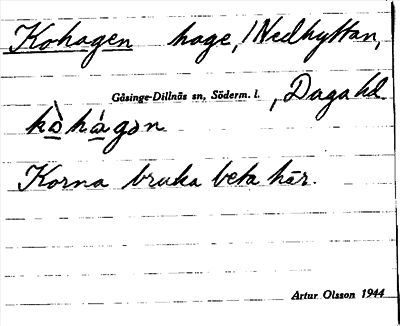 Kohagen hage, /Nedhyttan,
Gåsinge-Dillnäs sn, Söderm. l. , Daga hd
kòhágən
Korna bruka beta här.
Artur Olsson 1944